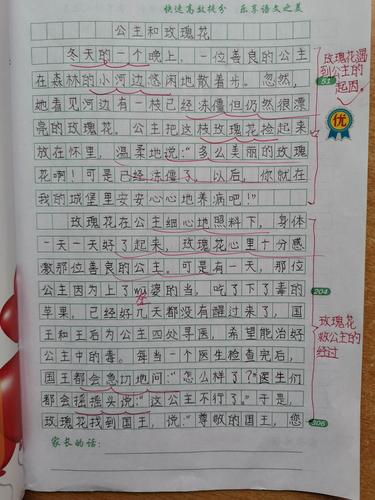 快速高效提分 乐享语文之美
公主和玫瑰花
冬天的一个晚上，一位善良的公主
在森林的小河边悠闲地散着步。忽然，
她看见河边有一枝已经冻僵但仍然很漂
亮的玫瑰花。公主把这枝玫瑰花捡起来
放在怀里，温柔地说：“多么美丽的玫瑰
花啊！可是已经冻僵了。以后，你就在
我的城堡里安安心心地养病吧！”
玫瑰花在公主细心地照料下，身体
一天一天好了起来，玫瑰花心里十分感
激那位善良的公主。可是有一天，那位
公主因为上了wū婆的当，吃了下了毒的
巫
苹果，已经好几天都没有醒过来了，国
王和王后为公主四处寻医，希望能治好
公主中的毒。每当一个医生检查完后，
国王都会急切地问：“怎么样了？”医生们
都会摇摇头说：“这公主不行了。”于是，
玫瑰花找到国王，说：“尊敬的国王，您
家长的话：
玫瑰花遇
到公主的
起因。
51
优
204
玫瑰花
救公主的
经过
306